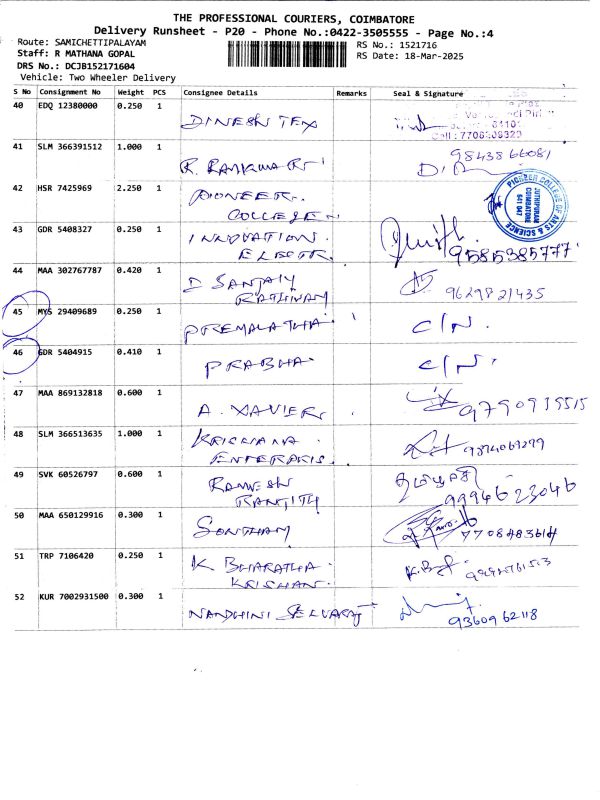 THE PROFESSIONAL COURIERS, COIMBATORE
Delivery Runsheet - P20 - Phone No.:0422-3505555 - Page No.:4
Route: SAMICHETTIPALAYAM
RS No.: 1521716
Staff: R MATHANA GOPAL
RS Date: 18-Mar-2025
DRS No.: DCJB152171604
Vehicle: Two Wheeler Delivery
S No Consignment No Weight PCS Consignee Details Remarks Seal & Signature
40 EDQ 12380000 0.250 1 DINESH TEX
Cell : 7708308320
41 SLM 366391512 1.000 1 R. RAMKUMAR 9843866081
42 HSR 7425969 2.250 1 PIONEER
COLLEGE
PIONEER COLLEGE OF ARTS & SCIENCE
JOTHIPURAM
COIMBATORE
641 047
43 GDR 5408327 0.250 1 INNOVATION
ELECTR. 9585385777
44 MAA 302767787 0.420 1 D SANJAY
RATHINAM 9629821435
45 MYS 29409689 0.250 1 PREMALATHA C/N.
46 GDR 5404915 0.410 1 PRABHA C/N.
47 MAA 869132818 0.600 1 A. XAVIER 9790939515
48 SLM 366513635 1.000 1 KRISHNA
ENTERPRIS.
49 SVK 60526797 0.600 1 RAMESH
RANJITH 9994623046
50 MAA 650129916 0.300 1 SONTHAM 7708483614
51 TRP 7106420 0.250 1 K BHARATHA
KRISHAN.
52 KUR 7002931500 0.300 1 NANDHINI SELVARAJ 9360962118